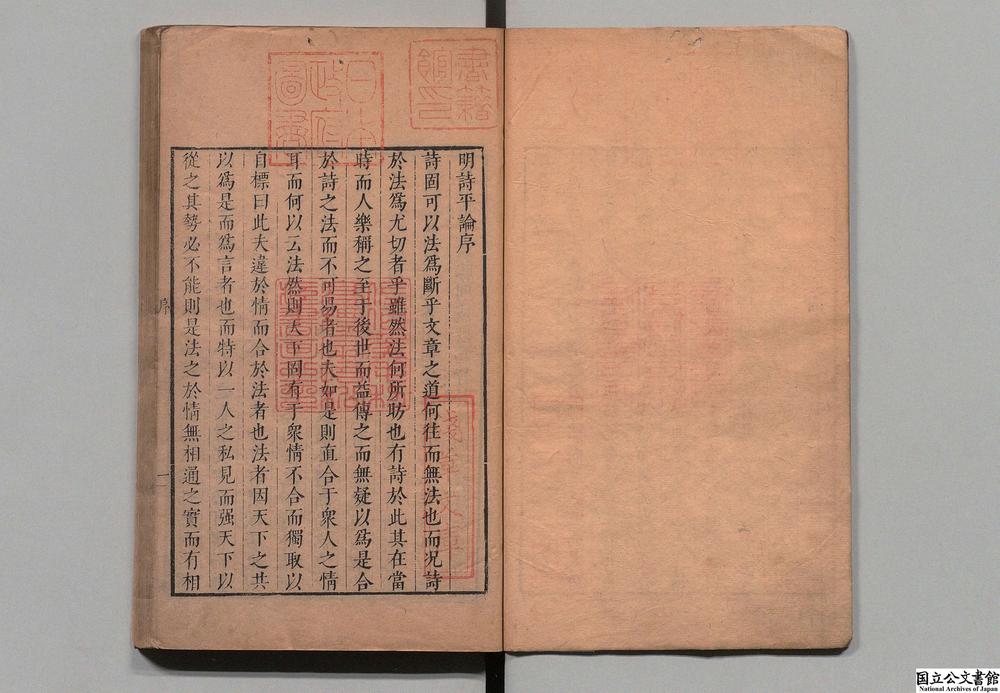 明詩平論序
詩固可以法為斷乎文章之道何往而無法也而况詩
於法爲尤切者乎雖然法何所昉也有詩於此其在當
時而人樂稱之至于後世而益傳之而無疑以爲是合
於詩之法而不可易者也夫如是則直合于衆人之情
耳而何以云法然則天下固有于衆情不合而獨取以
自標曰此夫違於情而合於法者也法者因天下之共
以爲是而爲言者也而特以一人之私見而强天下以
從之其勢必不能則是法之於情無相通之實而有相
序
一
書籍館印
日本政府圖書
淺草文庫
国立公文書館
National Archives of Japan